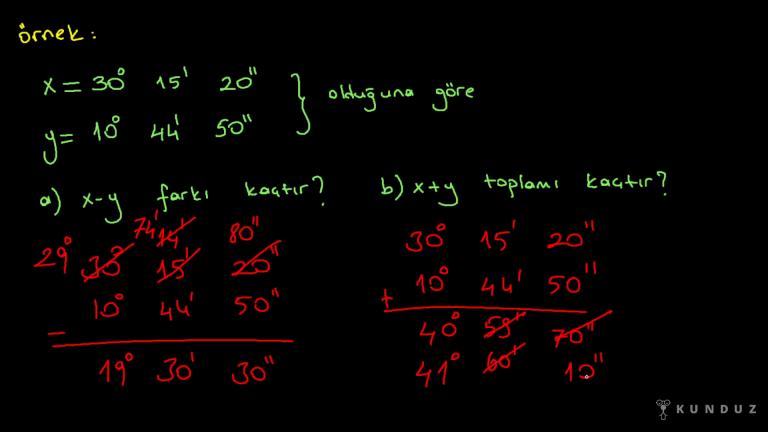 örnek:
x = 30° 15' 20"
y = 10° 44' 50"
} olduğuna göre
a) x-y farkı kaçtır?
74' 14' 80"
29° 30° 15' 20"
10° 44' 50"
-
19° 30' 30"
b) x+y toplamı kaçtır?
30° 15' 20"
+ 10° 44' 50"
40° 59' 70"
41° 60' 10"
KUNDUZ